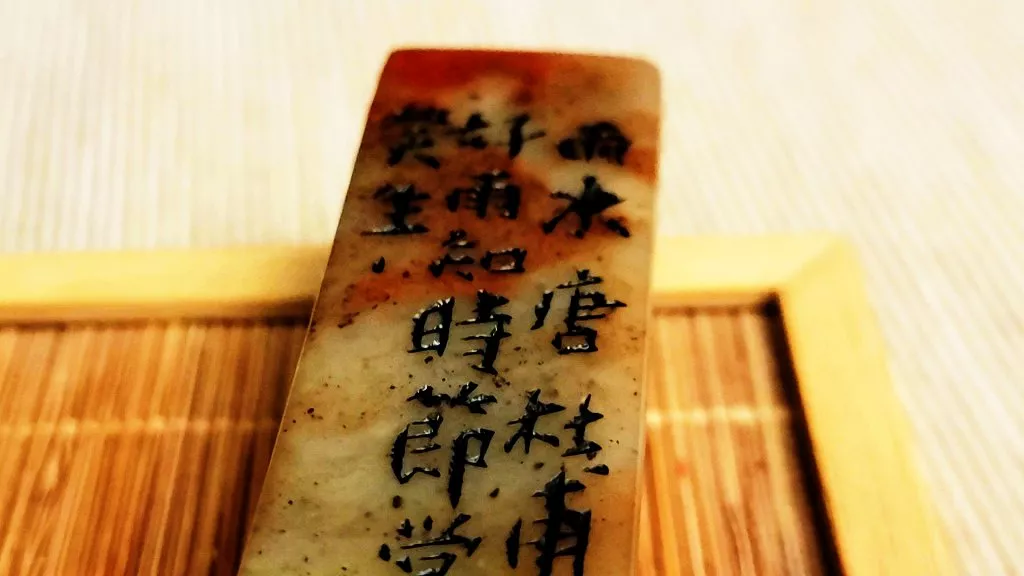 雨水唐杜甫
好雨知時節當
發生